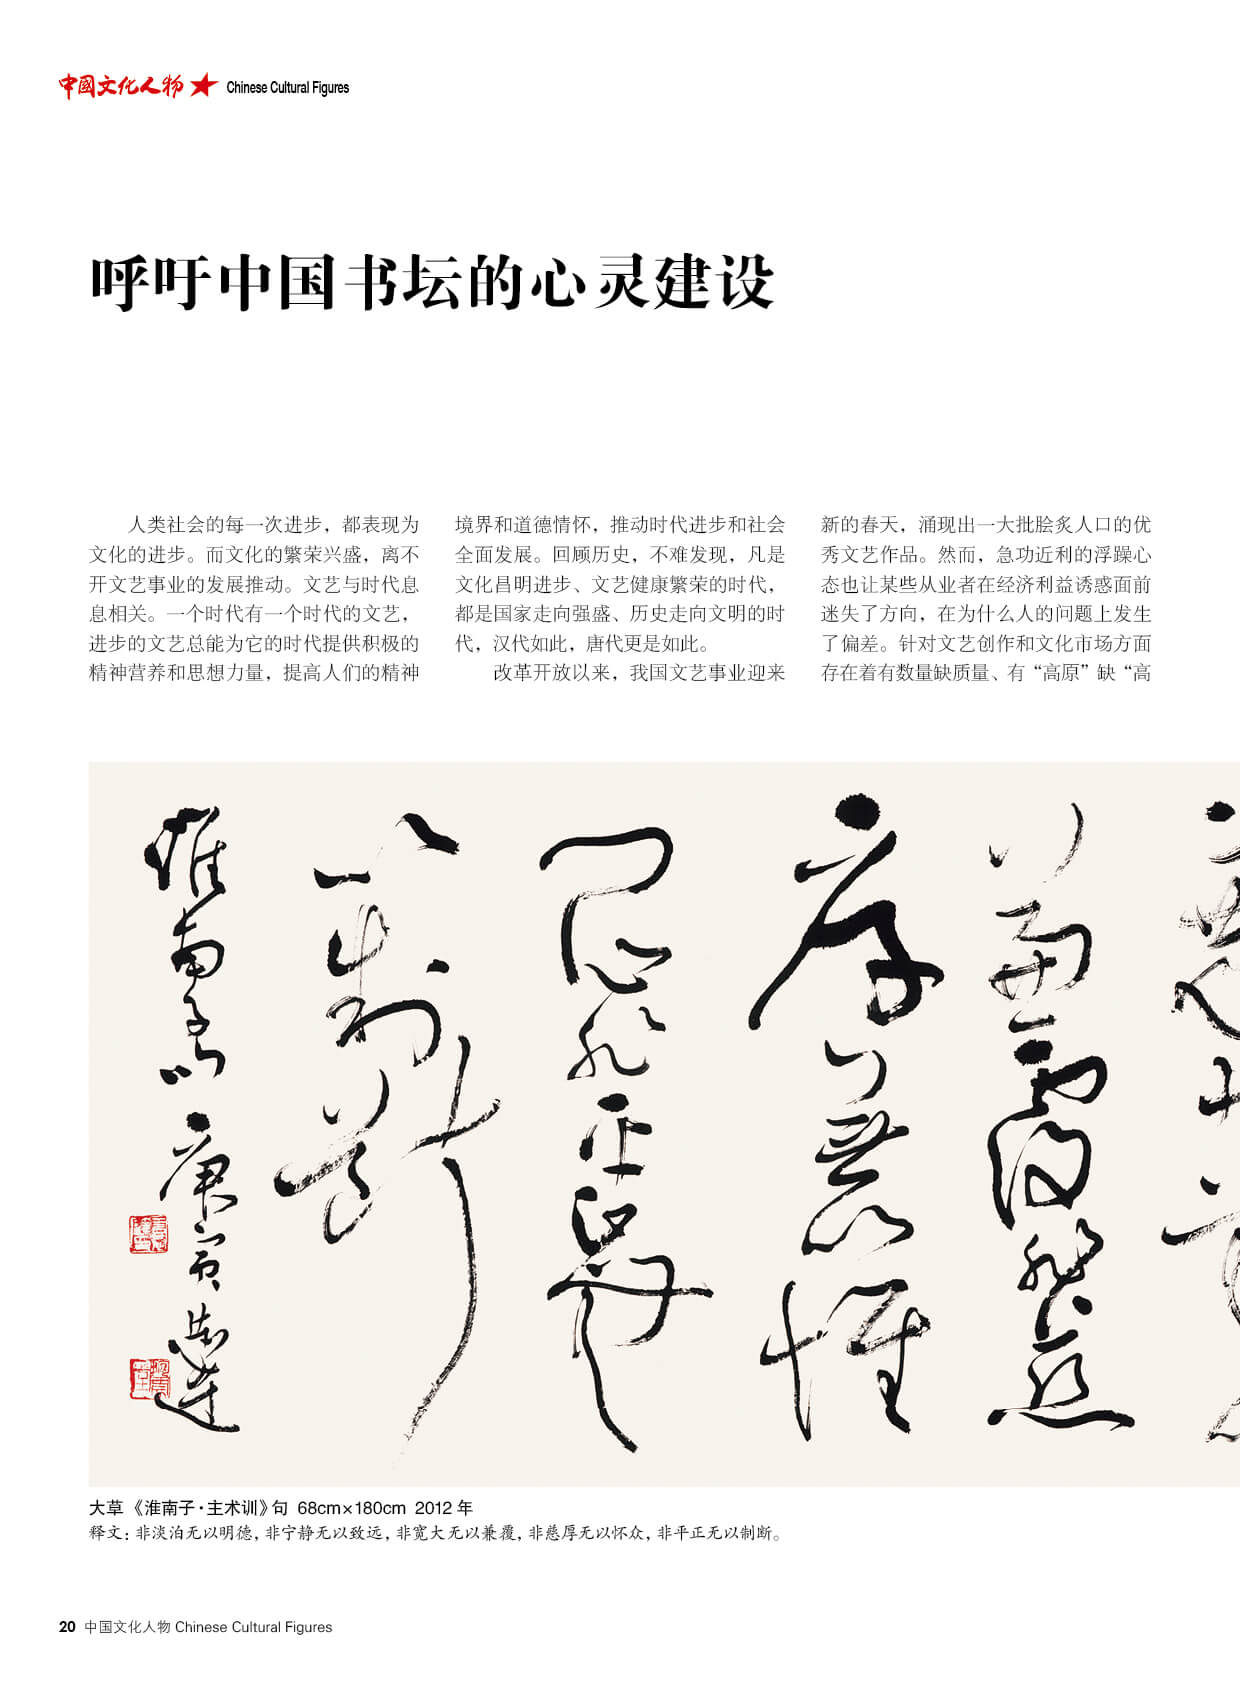 中國文化人物 Chinese Cultural Figures
呼吁中国书坛的心灵建设
人类社会的每一次进步，都表现为
文化的进步。而文化的繁荣兴盛，离不
开文艺事业的发展推动。文艺与时代息
息相关。一个时代有一个时代的文艺，
进步的文艺总能为它的时代提供积极的
精神营养和思想力量，提高人们的精神
境界和道德情怀，推动时代进步和社会
全面发展。回顾历史，不难发现，凡是
文化昌明进步、文艺健康繁荣的时代，
都是国家走向强盛、历史走向文明的时
代，汉代如此，唐代更是如此。
改革开放以来，我国文艺事业迎来
新的春天，涌现出一大批脍炙人口的优
秀文艺作品。然而，急功近利的浮躁心
态也让某些从业者在经济利益诱惑面前
迷失了方向，在为什么人的问题上发生
了偏差。针对文艺创作和文化市场方面
存在着有数量缺质量、有“高原”缺“高
兼覆非慈
厚無以懷
眾非平正無
以制斷
淮南子句 庚寅 志達
大草《淮南子·主术训》句 68cm×180cm 2012 年
释文：非淡泊无以明德，非宁静无以致远，非宽大无以兼覆，非慈厚无以怀众，非平正无以制断。
20 中国文化人物 Chinese Cultural Figures